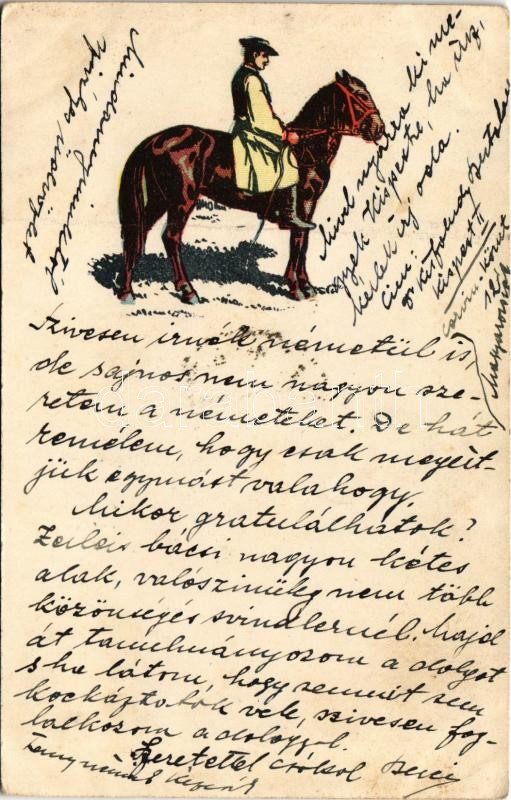 Szivesen irnék németül is,
de sajnos nem nagyon sze-
retem a németeket. De hát
remelem, hogy csak megért-
jük egymást valahogy.
Mikor gratulálhatok?
Zeileis bácsi nagyon kétes
alak, valószinüleg nem több
közönséges svindlernél. Majd
át tanulmányozom a dolgot
s ha látom, hogy semmit sem
kockáztatok vele, szivesen fog-
lalkozom a dologgal.
Szeretettel csókol
Mivel nyárra ki me-
gyek Kispestre, ha irsz,
kérlek irj oda.
Cim:
Dr Kisfaludy Bertalan
Kispest II
12
Magyarország